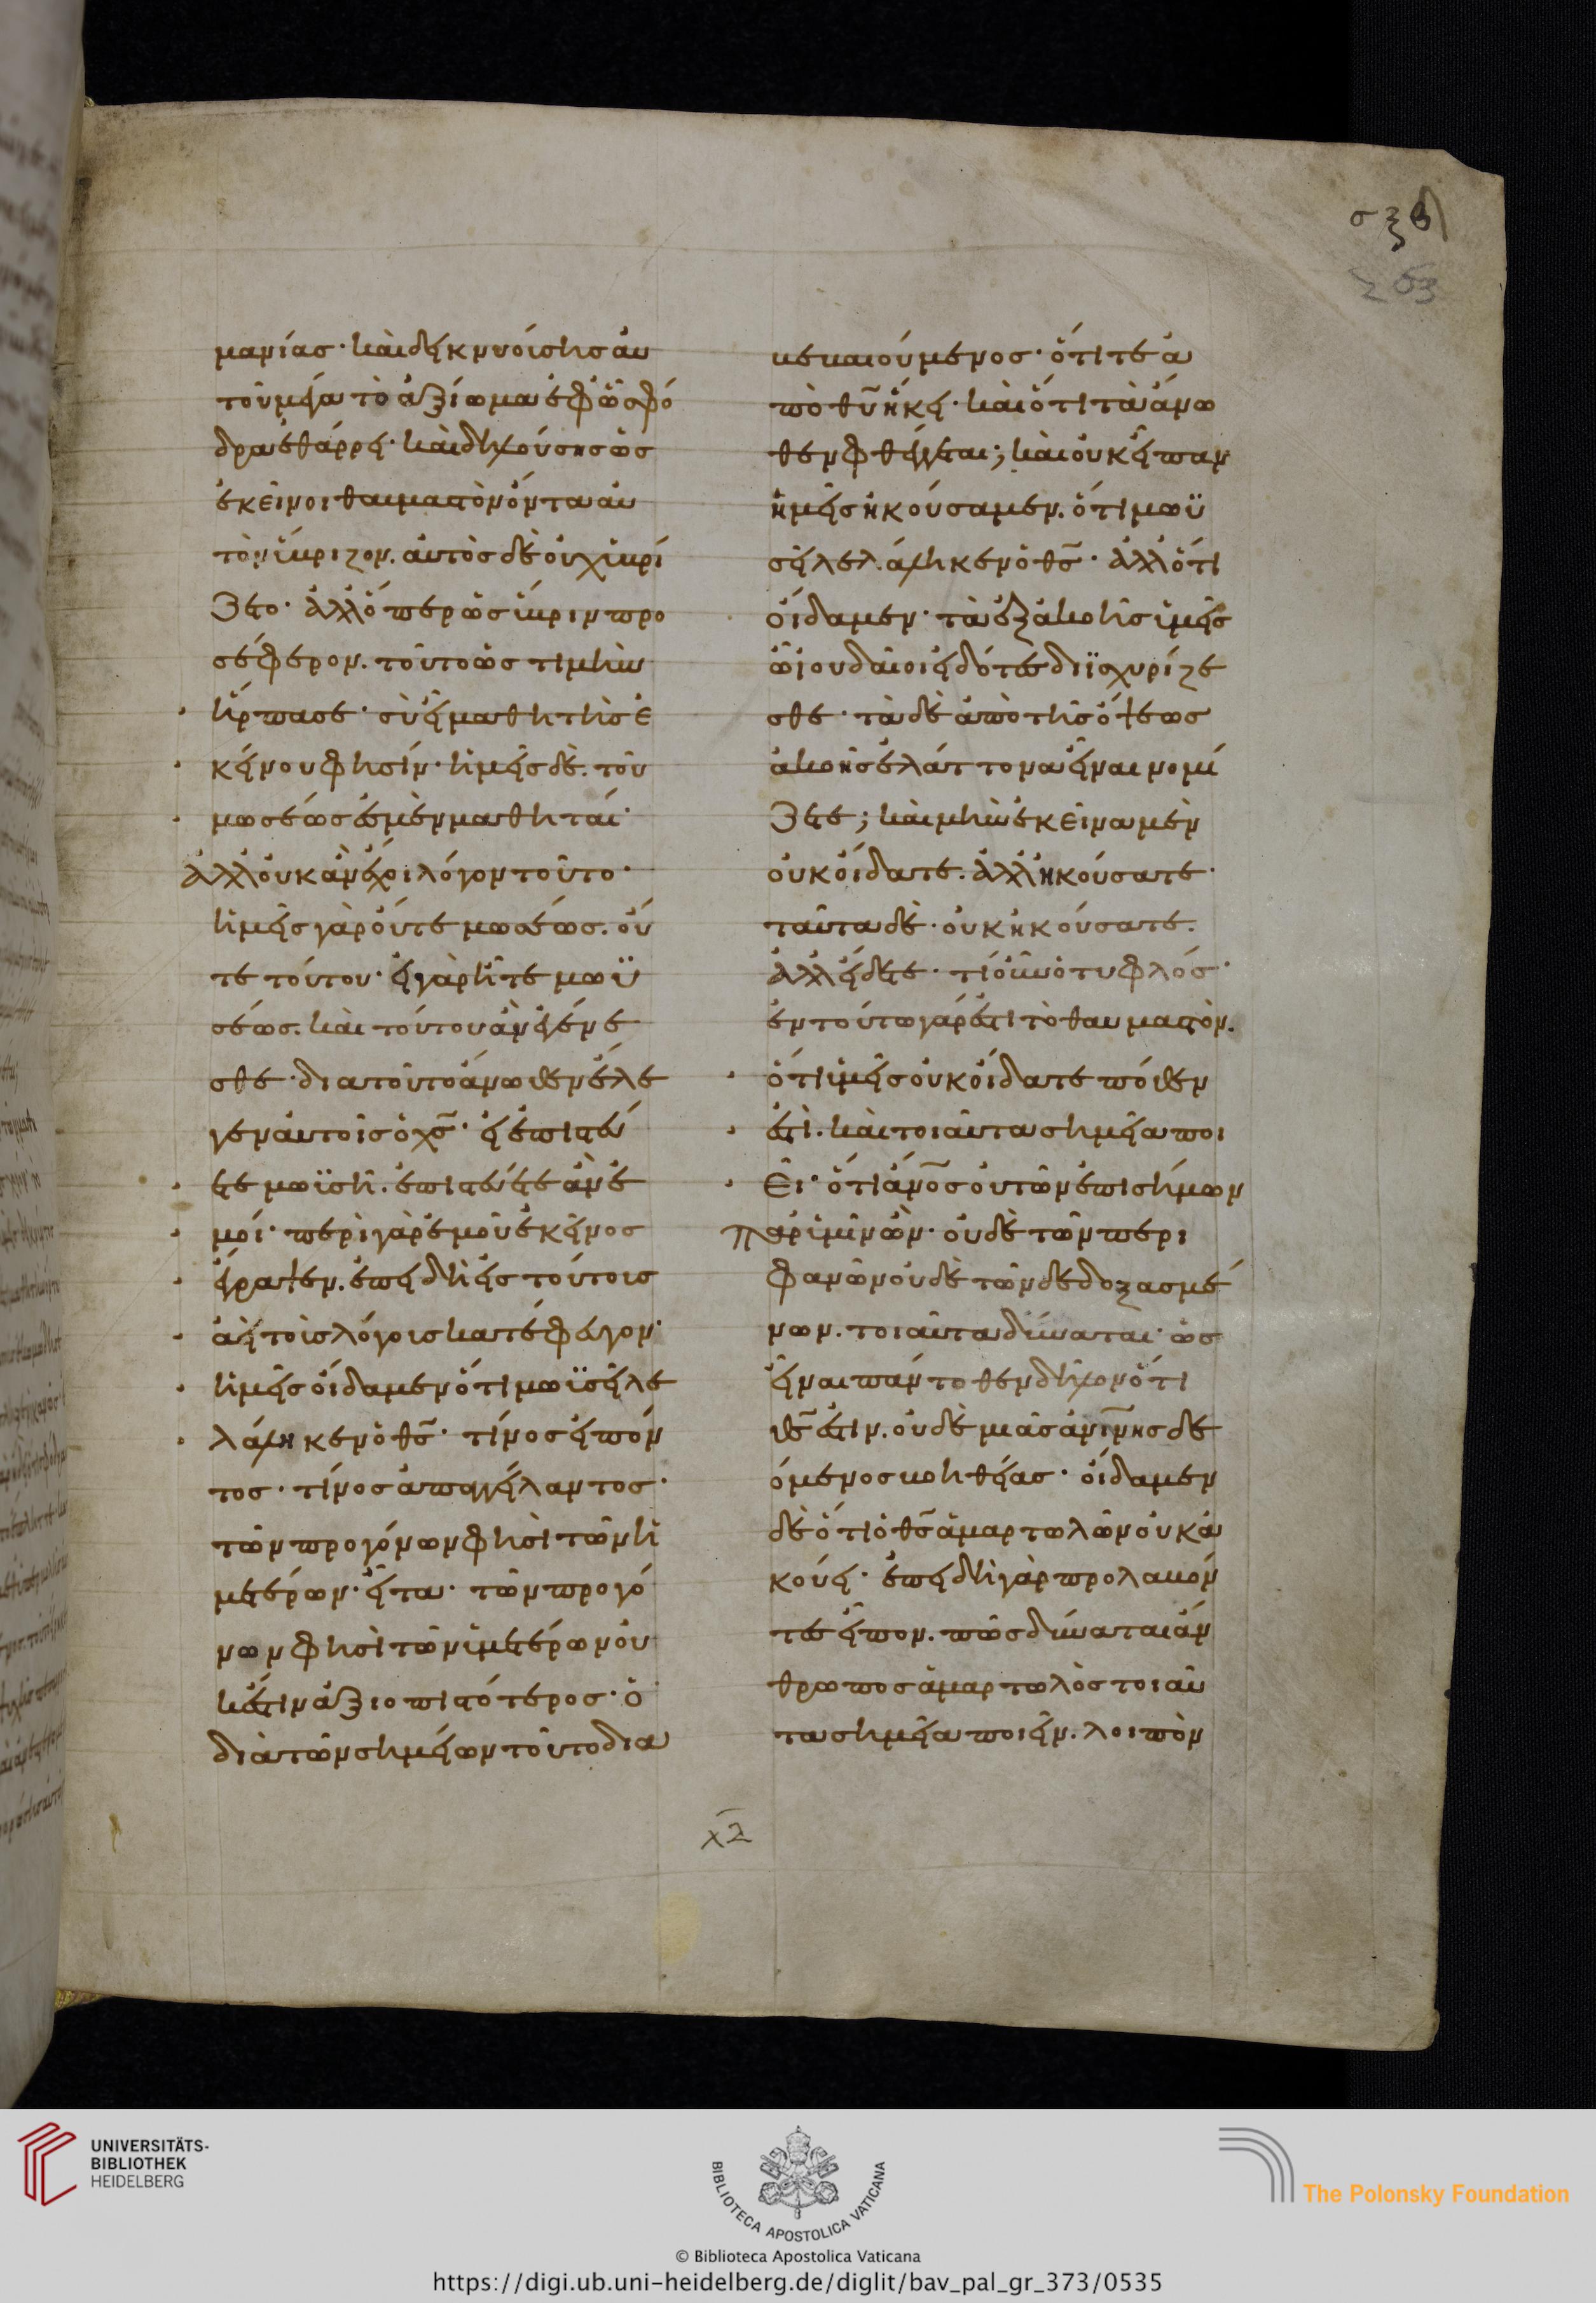 μανίας· καὶ δεικνυούσης αὐ
τοῦ μέγα τὸ ἀξίωμα ἐφ' ᾧ σφό
δρα ἐθάρρει· καὶ δηλούσης ὡς
ἐκεῖνοι θαυμαστὸν ὄντα αὐ
τὸν ὕβριζον. αὐτὸς δὲ οὐχ ὑβρί
ζετο· ἀλλ' ὅπερ ὡς ὕβριν προ
σέφερον. τοῦτο ὡς τιμὴν
ἥρπασε· σὺ εἶ μαθητὴς ἐ
κείνου φησίν· ἡμεῖς δὲ. τοῦ
μωσέως ἐσμὲν μαθηταί·
ἀλλ' οὐκ ἂν ἔχοι λόγον τοῦτο·
ἡμεῖς γὰρ οὔτε μωσέως. οὔ
τε τούτου· εἰ γὰρ ἦτε μωϋ
σέως. καὶ τούτου ἂν ἐγένε
σθε· διατοῦτο ἄνωθεν ἔλε
γεν αὐτοῖς ὁ χ̅ς· εἰ ἐπιστεύ
ετε μωϊσῆ. ἐπιστεύετε ἂν ἐ
μοί· περὶ γὰρ ἐμοῦ ἐκεῖνος
ἔγραψεν. ἐπειδὴ εἰς τούτοις
ἀεὶ τοῖς λόγοις κατέφευγον·
ἡμεῖς οἴδαμεν ὅτι μωϊσεῖ λε
λάληκεν ὁ θ̅ς· τίνος εἰπόν
τος· τίνος ἀπαγγείλαντος·
τῶν προγόνων φησὶ τῶν ἡ
μετέρων· εἶτα· τῶν προγό
νων φησὶ τῶν ὑμετέρων οὐ
κ ἔστιν ἀξιοπιστότερος· ὁ
διὰ τῶν σημείων τοῦτο δια
βεβαιούμενος· ὅτι τε ἀ
πὸ θ̅υ ἥκει· καὶ ὅτι τὰ ἄνω
θεν φθέγγεται; καὶ οὐκ εἶπαν
ἡμεῖς ἠκούσαμεν. ὅτι μωϋ
σεῖ λελάληκεν ὁ θ̅ς· ἀλλ' ὅτι
οἴδαμεν· τὰ ἐξ ἀκοῆς ὑμεῖς
ὦ ἰουδαῖοι εἰδότες διϊσχυρίζε
σθε· τὰ δὲ ἀπὸ τῆς ὄψεως
ἀκοῆς ἐλάττονα εἶναι νομί
ζετε; καὶ μὴν ἐκεῖνα μὲν
οὐκ οἴδατε. ἀλλ' ἠκούσατε·
ταῦτα δὲ· οὐκ ἠκούσατε.
ἀλλ' εἴδετε· τί οὖν ὁ τυφλός·
ἐν τούτω γάρ ἐστι τὸ θαυμαστόν.
ὅτι ὑμεῖς οὐκ οἴδατε πόθεν
ἐστὶ. καὶ τοιαῦτα σημεῖα ποι
εῖ· ὅτι ἄν̅ο̅ς οὐ τῶν ἐπισήμων
παρ' ὑμῖν ὤν· οὐδὲ τῶν περι
φανῶν οὐδὲ τῶν δεδοξασμέ
νων. τοιαῦτα δύναται· ὡς
εἶναι πάντοθεν δῆλον ὅτι
θ̅ς ἐστιν. οὐδὲ μιᾶς ἀν̅ι̅νης δε
όμενος βοηθείας· οἴδαμεν
δὲ ὅτι ὁ θ̅ς ἁμαρτωλῶν οὐκ ἀ
κούει· ἐπειδὴ γὰρ προλαβόν
τες εἶπον. πῶς δύναται ἄν
θρωπος ἁμαρτωλὸς τοιαῦ
τα σημεῖα ποιεῖν. λοιπὸν
263
UNIVERSITÄTS-
BIBLIOTHEK
HEIDELBERG
BIBLIOTECA APOSTOLICA VATICANA
The Polonsky Foundation
© Biblioteca Apostolica Vaticana
https://digi.ub.uni-heidelberg.de/diglit/bav_pal_gr_373/0535